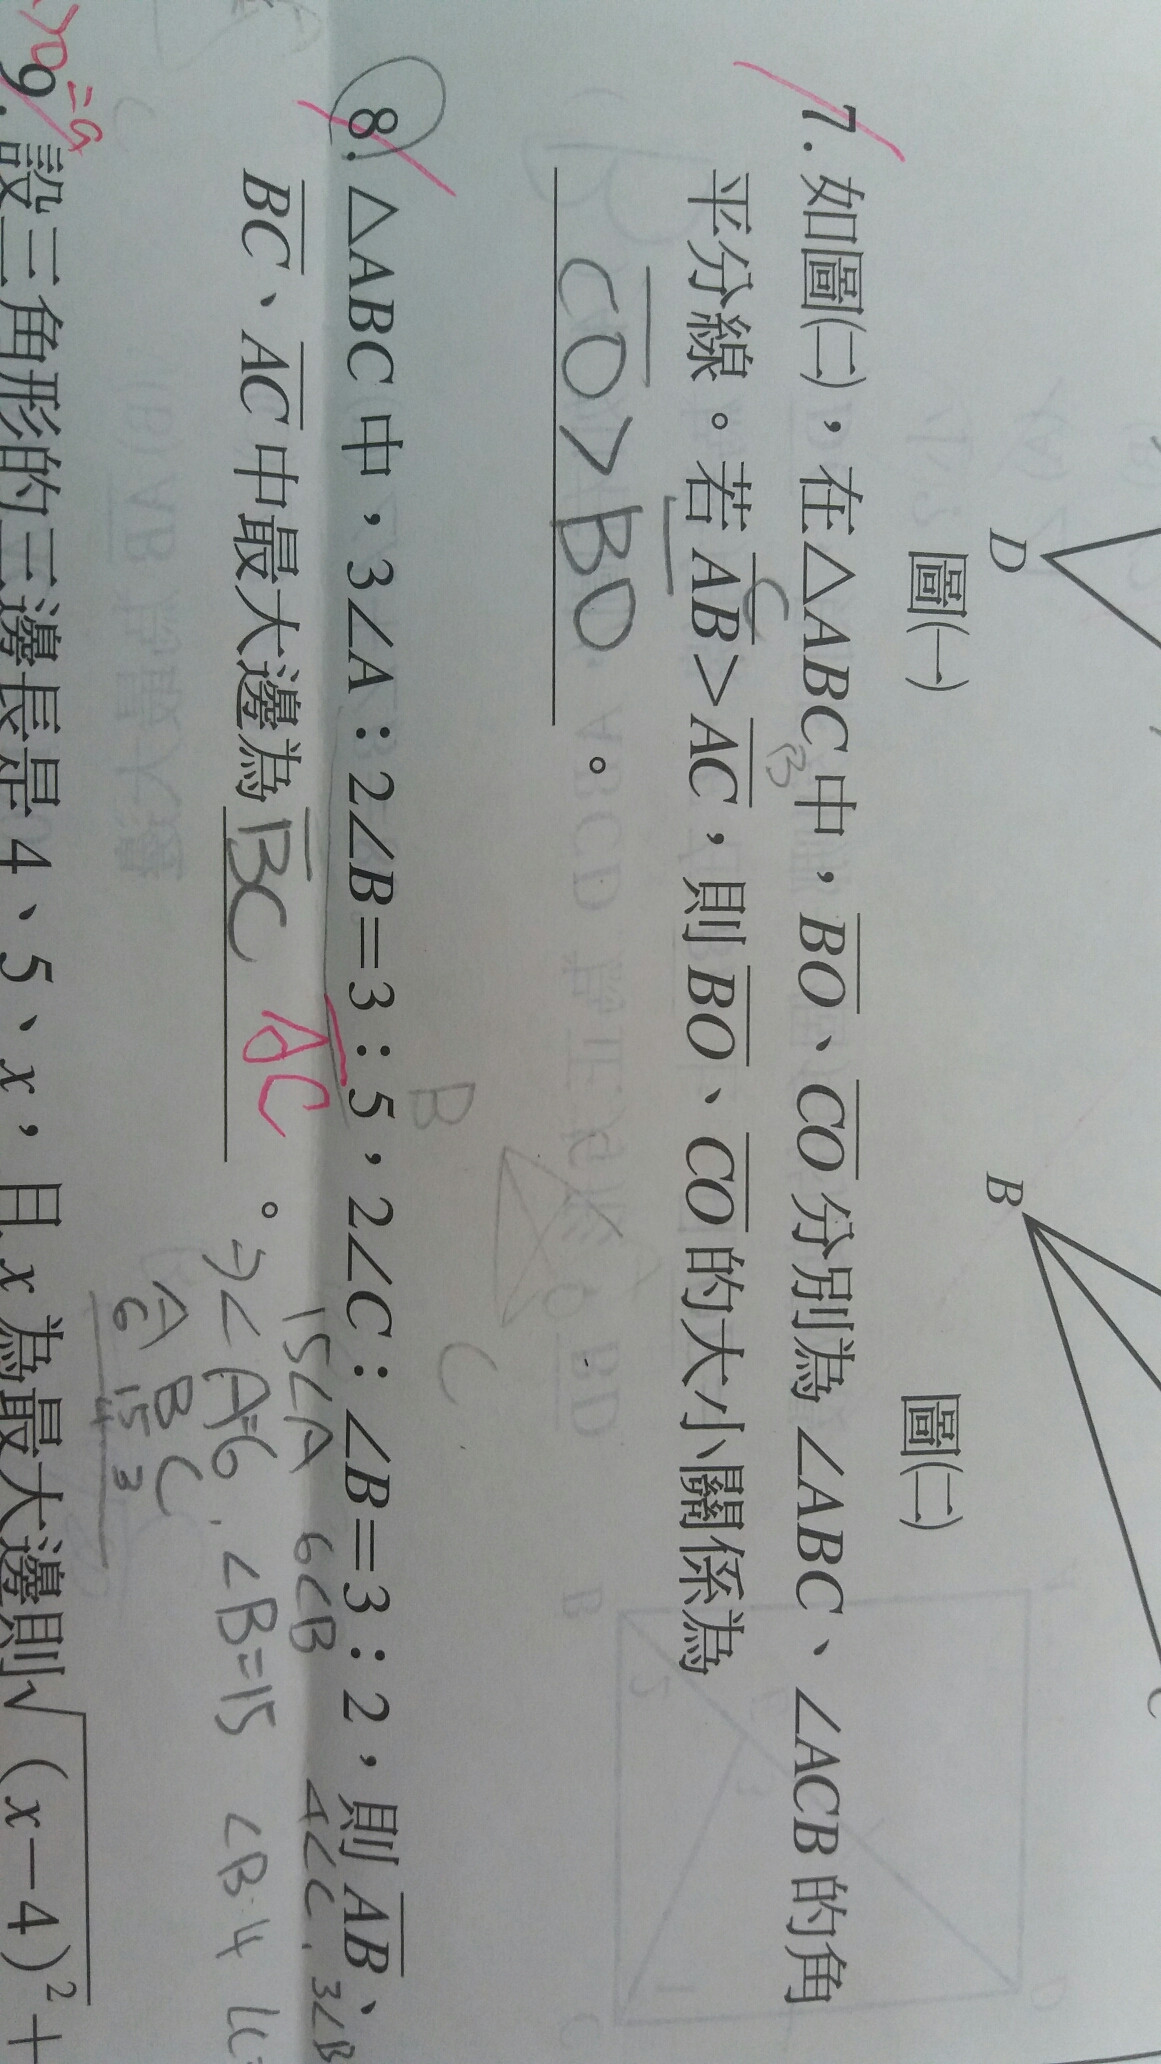 D
B
C
圖(一)
圖(二)
7. 如圖(二)，在△ABC中，BO、CO分別為∠ABC、∠ACB的角
平分線。若AB＞AC，則BO、CO的大小關係為
CO>BO。
8. △ABC中，3∠A：2∠B＝3：5，2∠C：∠B＝3：2，則AB、
BC、AC中最大邊為BC AC。
B
C
C
B
15∠A 6∠B 4∠C. 3∠B
∠A=6. ∠B=15 ∠B·4
A B C
6 15
9. 設三角形的三邊長是4、5、x，且x為最大邊則√(x－4)²＋